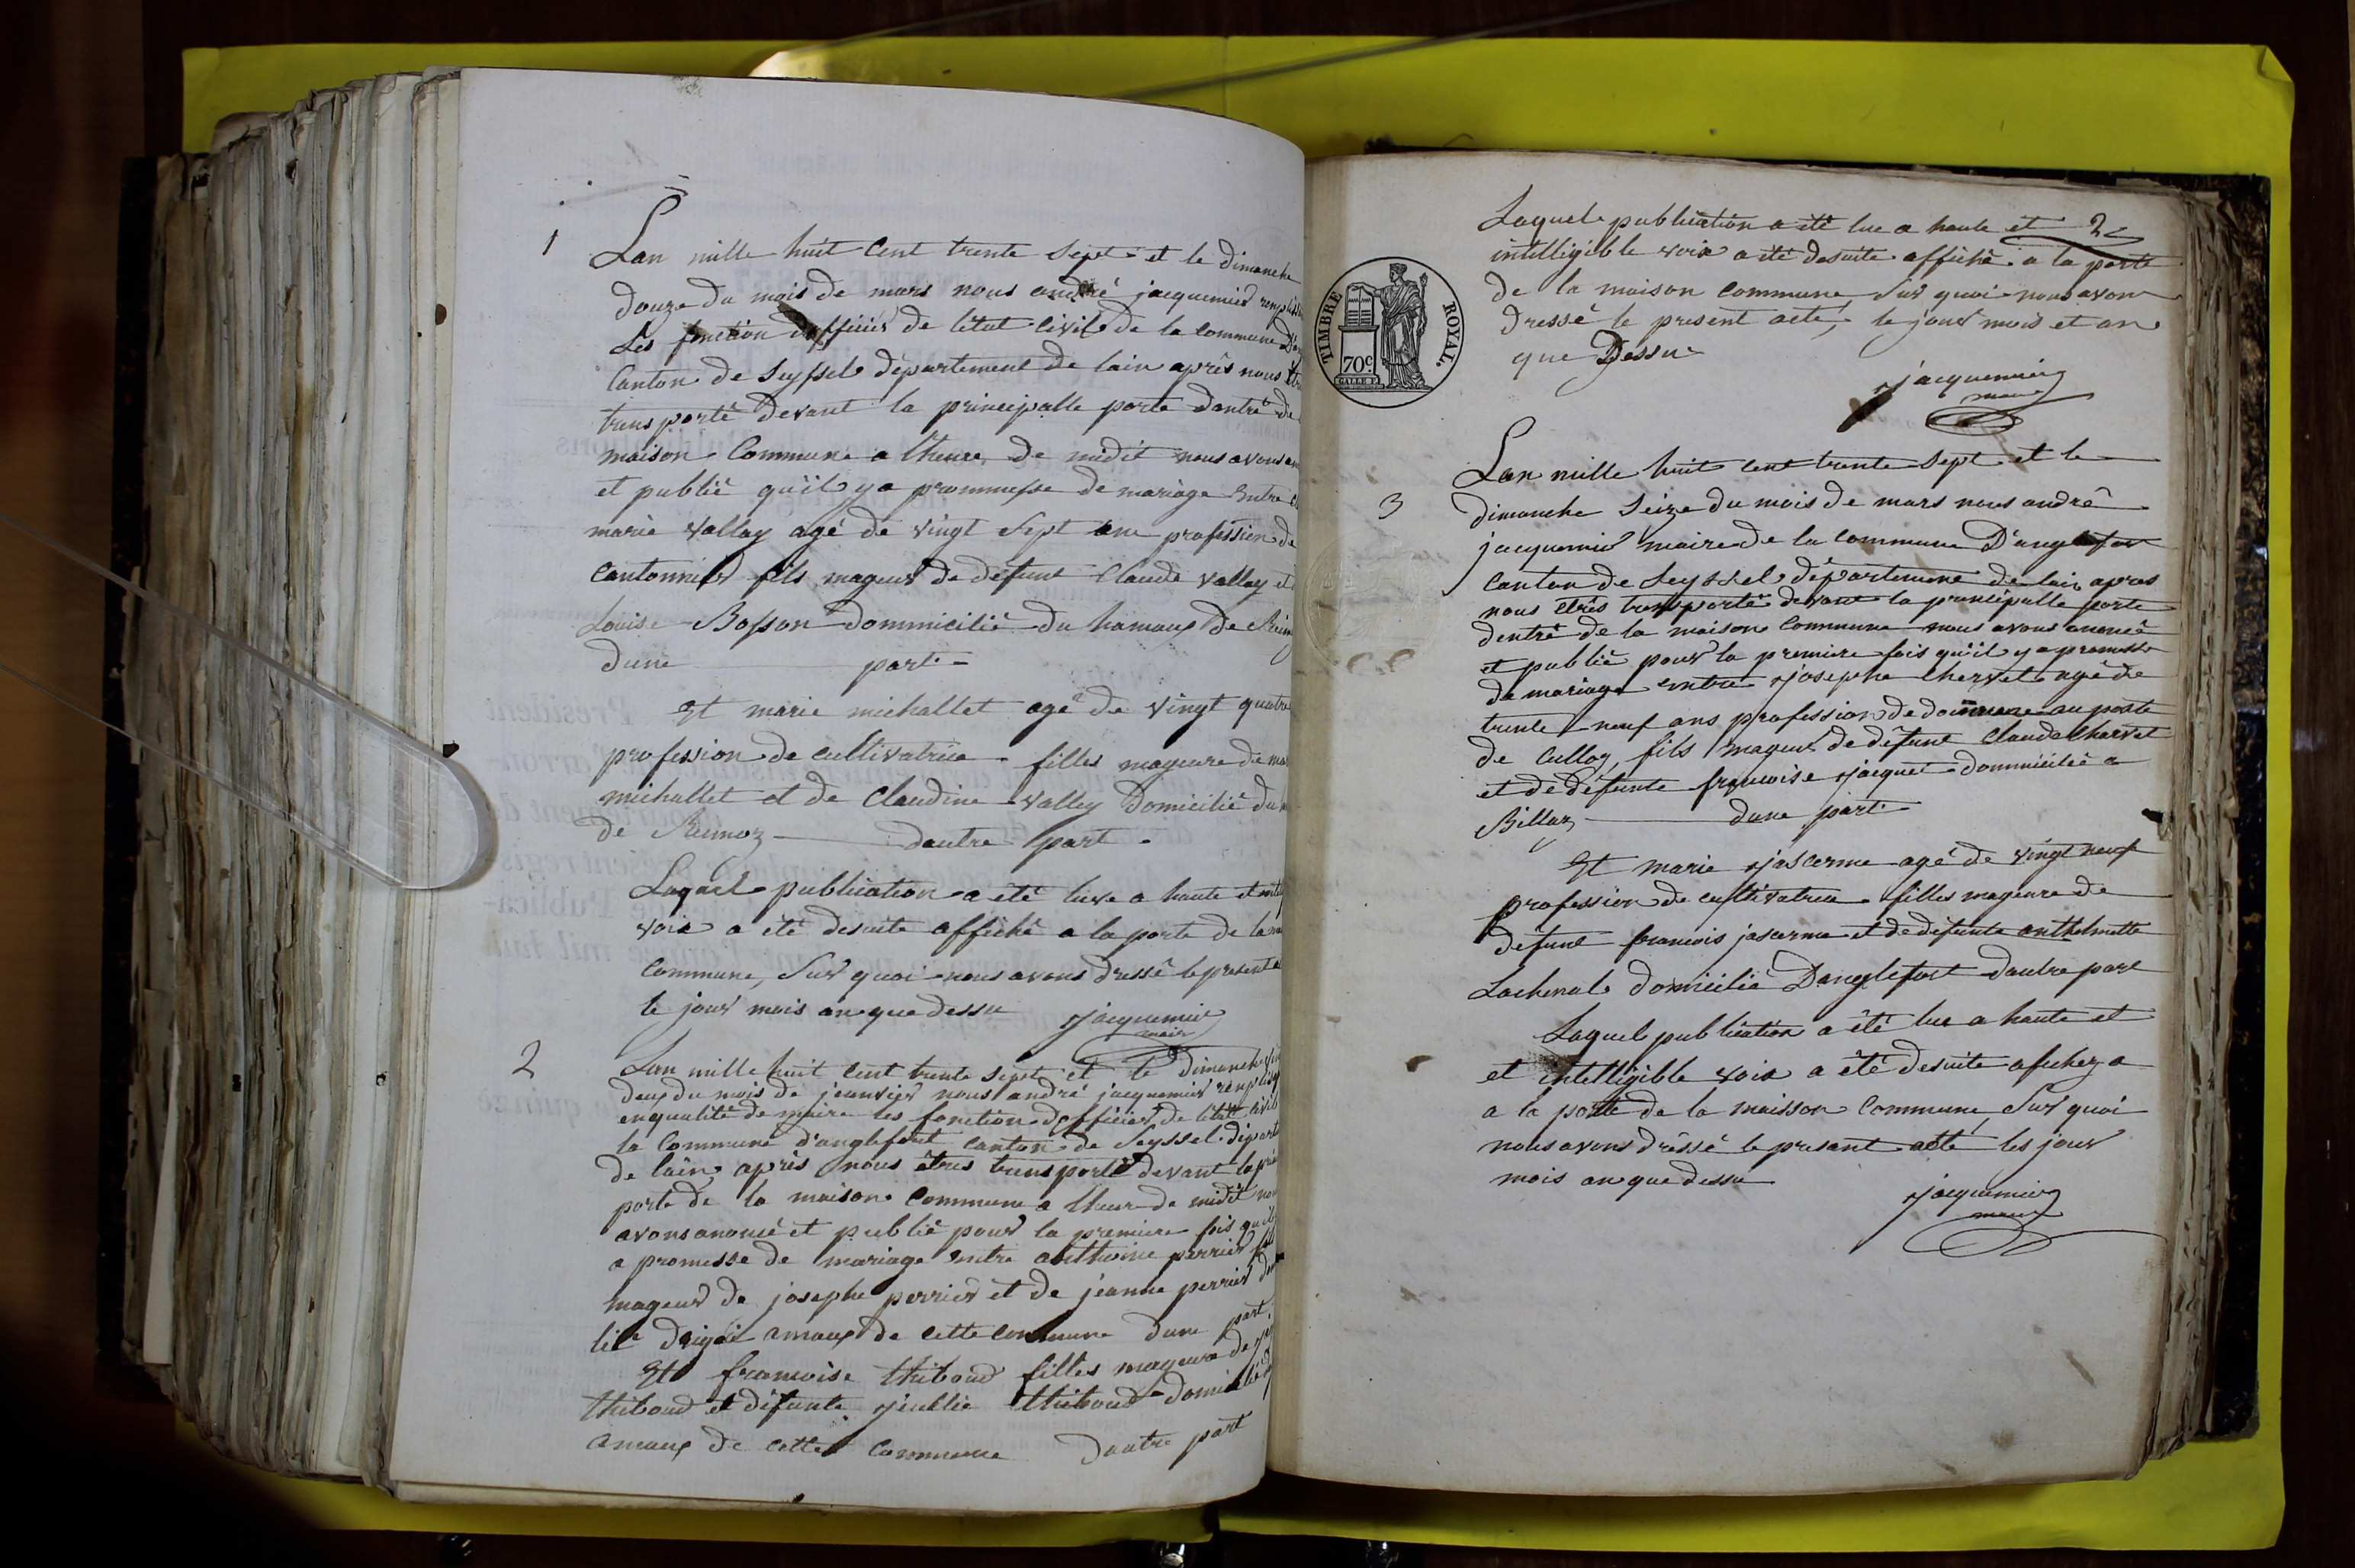 1
Lan mille huit Cent trente Sept et le dimanche
douze du mois de mars nous andré jacquemier
Les fonction dofficier de létat Civil de la commune
Canton de Seyssel département de lain après nous
transporté devant la principalle porte dantré de
maison Commune a lheure de midit nous avons
et publié quil ya prommesse de mariage Entre
marie Vallay agé de Vingt Sept ans profession de
Cantonnier fils mageur de défunt Claude Vallay et
Louise Bosson dommicilié du hamaux de
dune part
Et marie michallet agé de Vingt quatre
profession de cultivatrice filles mageure de
michallet et de Claudine Valley Domicilié du
de dautre part
Laquel publication a été luse a haute et
voix a été desuite affiché a la porte de la
Commune, Sur quoi nous avons dressé le present
le jour mois an que dessu
jacquemier
maire
2
Lan mille huit Cent trente Sept et le Dimanche
deux du mois de jeanvier nous andré jacquemier
enqualité de maire les fonction dofficier de létatt civil
la Commune d'anglefort Canton de Seyssel départ
de lain après nous êtres transporté devant la
porte de la maison Commune a lheure de midit
avons anoncé et publié pour la premiere fois quil
a promesse de mariage Entre anthoine perrier fils
mageur de josephe perrier et de jeanne perrier
lié amaux de cette Commune dune part
Et francoise thiboud filles mageure de
thiboud et défunte thiboud domicilié
amaux de cette Commune dautre part
Laquel publication a été lue a haute et 2
intelligible voix a été desuite affiché a la porte
de la maison Commune Sur quoi nous avon
dressé le present acte, le jour mois et an
que Dessu
jacquemier
maire
TIMBRE ROYAL.
70c
3
Lan mille huit cent trente Sept et le
dimanche Seize du mois de mars nous andré
jacquemier maire de la commune D'anglefort
Canton de Seyssel département de lain apres
nous etrés transporté devant la principalle porte
dentré de la maison Commune nous avons anoncé
et publié pour la premiere fois qu'il ya promesse
de mariage entre josephe Chervet agé de
trente neuf ans profession de douanne au poste
de Culloz, fils mageur de défunt Claude Chervet
et de défunte françoise jacquet dommicilié a
Billaz dune part
Et marie jascerme agé de vingt neuf
profession de cultivatrice filles mageure de
defunt francois jascerme et de défunte anthelmette
Lachenal domicilié Danglefort dautre part
Laquel publication a été lue a haute et
et intelligible voix a été desuite afichez a
a la porte de la maisson Commune, Sur quoi
nous avons dréssé le presant acte les jour
mois an que dessu
jacquemier
maire